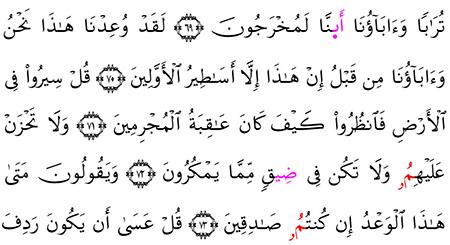 تُرَٰبًا وَءَابَآؤُنَا أَىِٕنَّا لَمُخْرَجُونَ ٦٩ لَقَدْ وُعِدْنَا هَـٰذَا نَحْنُ
وَءَابَآؤُنَا مِن قَبْلُ إِنْ هَـٰذَا إِلَّا أَسَـٰطِيرُ الْأَوَّلِينَ ٧٠ قُلْ سِيرُوا فِى
الْأَرْضِ فَانظُرُوا كَيْفَ كَانَ عَـٰقِبَةُ الْمُجْرِمِينَ ٧١ وَلَا تَحْزَنْ
عَلَيْهِمُۥ وَلَا تَكُن فِى ضِيقٍ مِّمَّا يَمْكُرُونَ ٧٢ وَيَقُولُونَ مَتَىٰ
هَـٰذَا الْوَعْدُ إِن كُنتُمُۥ صَـٰدِقِينَ ٧٣ قُلْ عَسَىٰ أَن يَكُونَ رَدِفَ